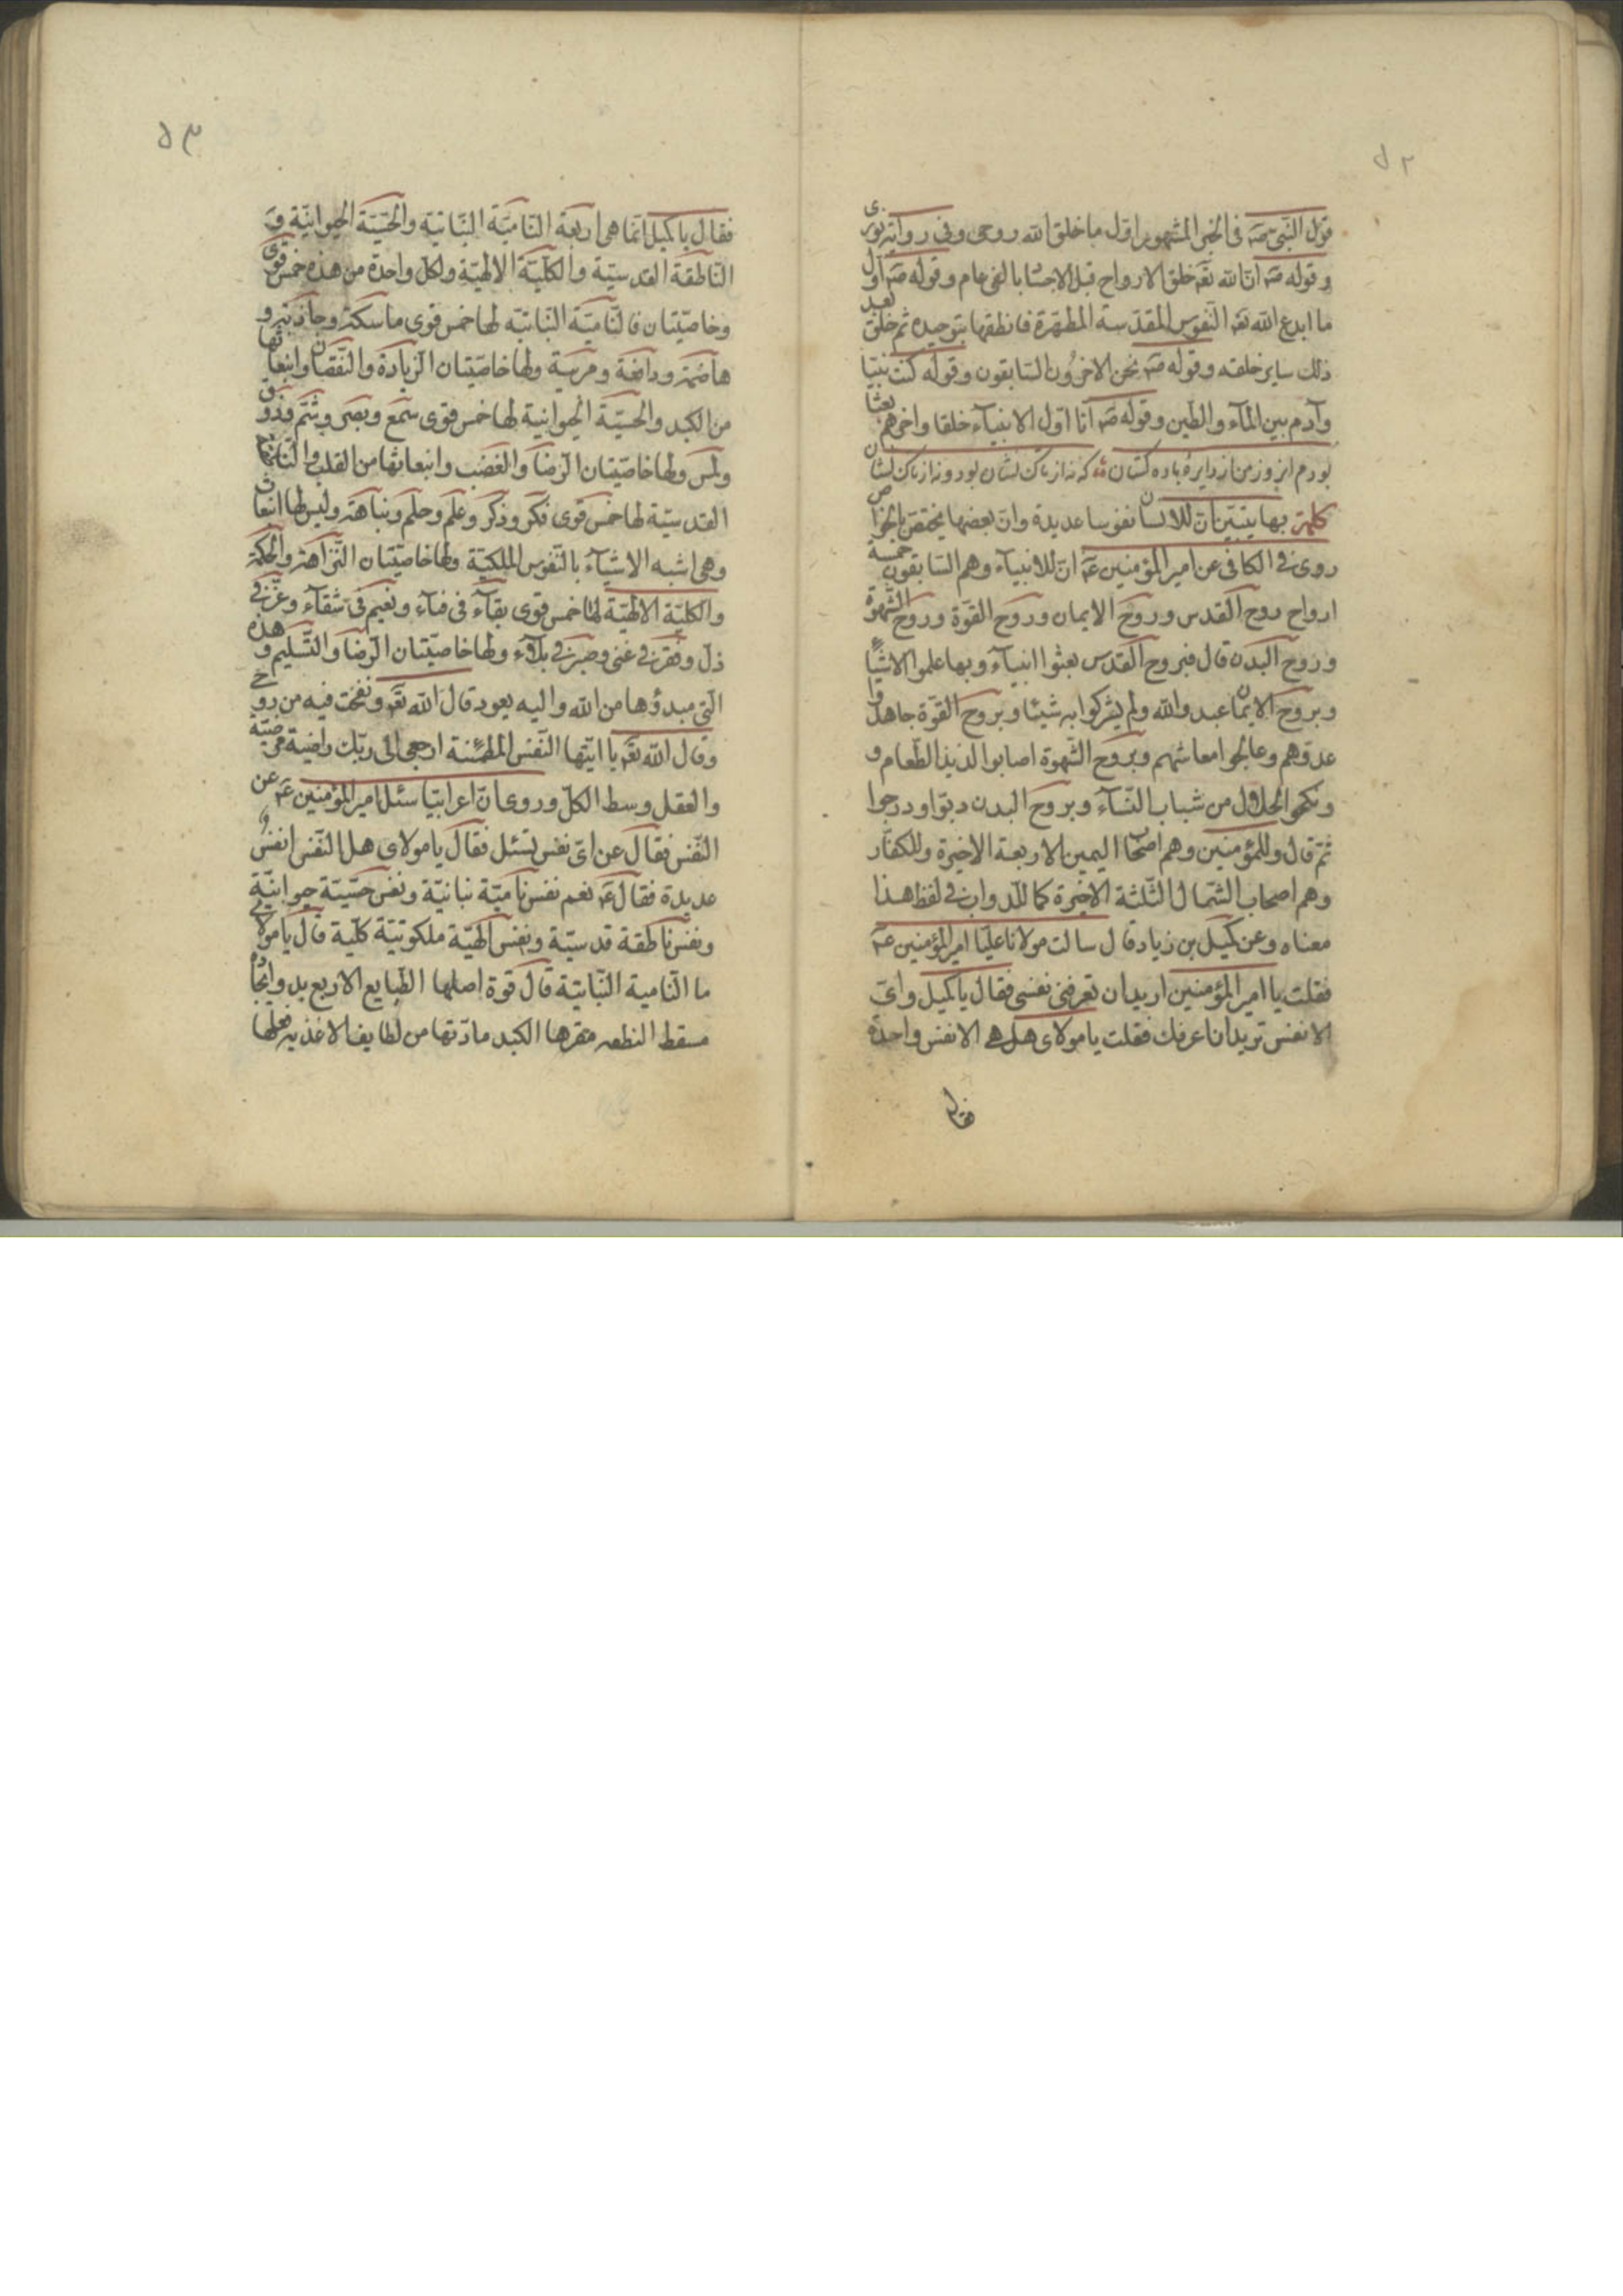 ٥٢
قول النبی صه فی الخبر المشهور اوّل ما خلق الله روحی وفی روایة نوری
وقوله صه انّ الله تعه خلق الارواح قبل الاجساد بالفی عام وقوله صه اوّل
ما ابدع الله تعه النّفوس المقدّسة المطهّرة فانطقها بتوحیده ثم خلق بعد
ذلك سایر خلقه وقوله صه نحن الاخرون السّابقون وقوله كنت نبیّا
وآدم بین المآء والطّین وقوله صه انا اوّل الانبیآء خلقا واخرهم بعثا
بودم انروز من از دایرۀ باده کشان که نه از تاک نشان بود و نه از تاک نشان
كلمة بها یتبیّن انّ للانسان نفوسا عدیدة وانّ بعضها یختصّ بالخواص
روی فی الكافی عن امیر المؤمنین عه انّ للانبیآء وهم السّابقون خمسة
ارواح روح القدس وروح الایمان وروح القوّة وروح الشّهوة
وروح البدن قال فبروح القدس بعثوا انبیآء وبها علموا الاشیآء
وبروح الایمان عبدوا الله ولم یشركوا به شیئا وبروح القوّة جاهدوا
عدوّهم وعالجوا معاشهم وبروح الشّهوة اصابوا لذیذ الطّعام و
ونكحوا الحلال من شباب النّسآء وبروح البدن دبّوا ودرجوا
ثمّ قال وللمؤمنین وهم اصحاب الیمین الاربعة الاخیرة وللكفّار
وهم اصحاب الشّمال الثّلثة الاخیرة كما للدواب فی لفظ هذا
معناه وعن كمیل بن زیاد قال سالت مولانا علیّا امیر المؤمنین عه
فقلت یا امیر المؤمنین ارید ان تعرفنی نفسی فقال یا كمیل وایّ
الانفس ترید ان اعرفك فقلت یا مولای هل هی الا نفس واحدة
فقال
٥٣
فقال یا كمیل انّما هی اربعة النّامیّة النّباتیّة والحسّیّة الحیوانیّة و
النّاطقة القدسیّة والكلّیّة الالهیّة ولكل واحدة من هذه خمس قوی
وخاصّیّتان فالنّامیّة النّباتیّة لها خمس قوی ماسكة وجاذبة و
هاضمة ودافعة ومربیّة ولها خاصّیّتان الزّیادة والنّقصان وانبعاثها
من الكبد والحسّیّة الحیوانیّة لها خمس قوی سمع وبصر وشمّ وذوق
ولمس ولها خاصّیّتان الرّضا والغضب وانبعاثها من القلب والنّاطقة
القدسیّة لها خمس قوی فكر وذكر وعلم وحلم ونباهة ولیس لها انبعاث
وهی اشبه الاشیآء بالنّفوس الملكیّة ولها خاصّیّتان النّزاهة والحكمة
والكلیّة الالهیّة لها خمس قوی بقآء فی فنآء ونعیم فی شقآء وعزّ فی
ذلّ وفقر فی غنی وصبر فی بلآء ولها خاصّیّتان الرّضا والتّسلیم وهذه
الّتی مبدؤها من الله والیه یعود قال الله تعه ونفخت فیه من روحی
وقال الله تعه یا ایّتها النّفس المطمئنة ارجعی الی ربّك راضیة مرضیّة
والعقل وسط الكلّ وروی انّ اعرابیّا سئل امیر المؤمنین عه عن
النّفس فقال عن ایّ نفس تسئل فقال یا مولای هل النّفس انفس
عدیدة فقال عه نعم نفس نامیّة نباتیّة ونفس حسّیّة حیوانیّة
ونفس ناطقة قدسیّة ونفس الهیّة ملكوتیّة كلّیة قال یا مولای
ما النّامیة النّباتیّة قال قوة اصلها الطّبایع الاربع بدو ایجادها
مسقط النطفه مقرها الكبد مادّتها من لطایف الاغذیه فعلها